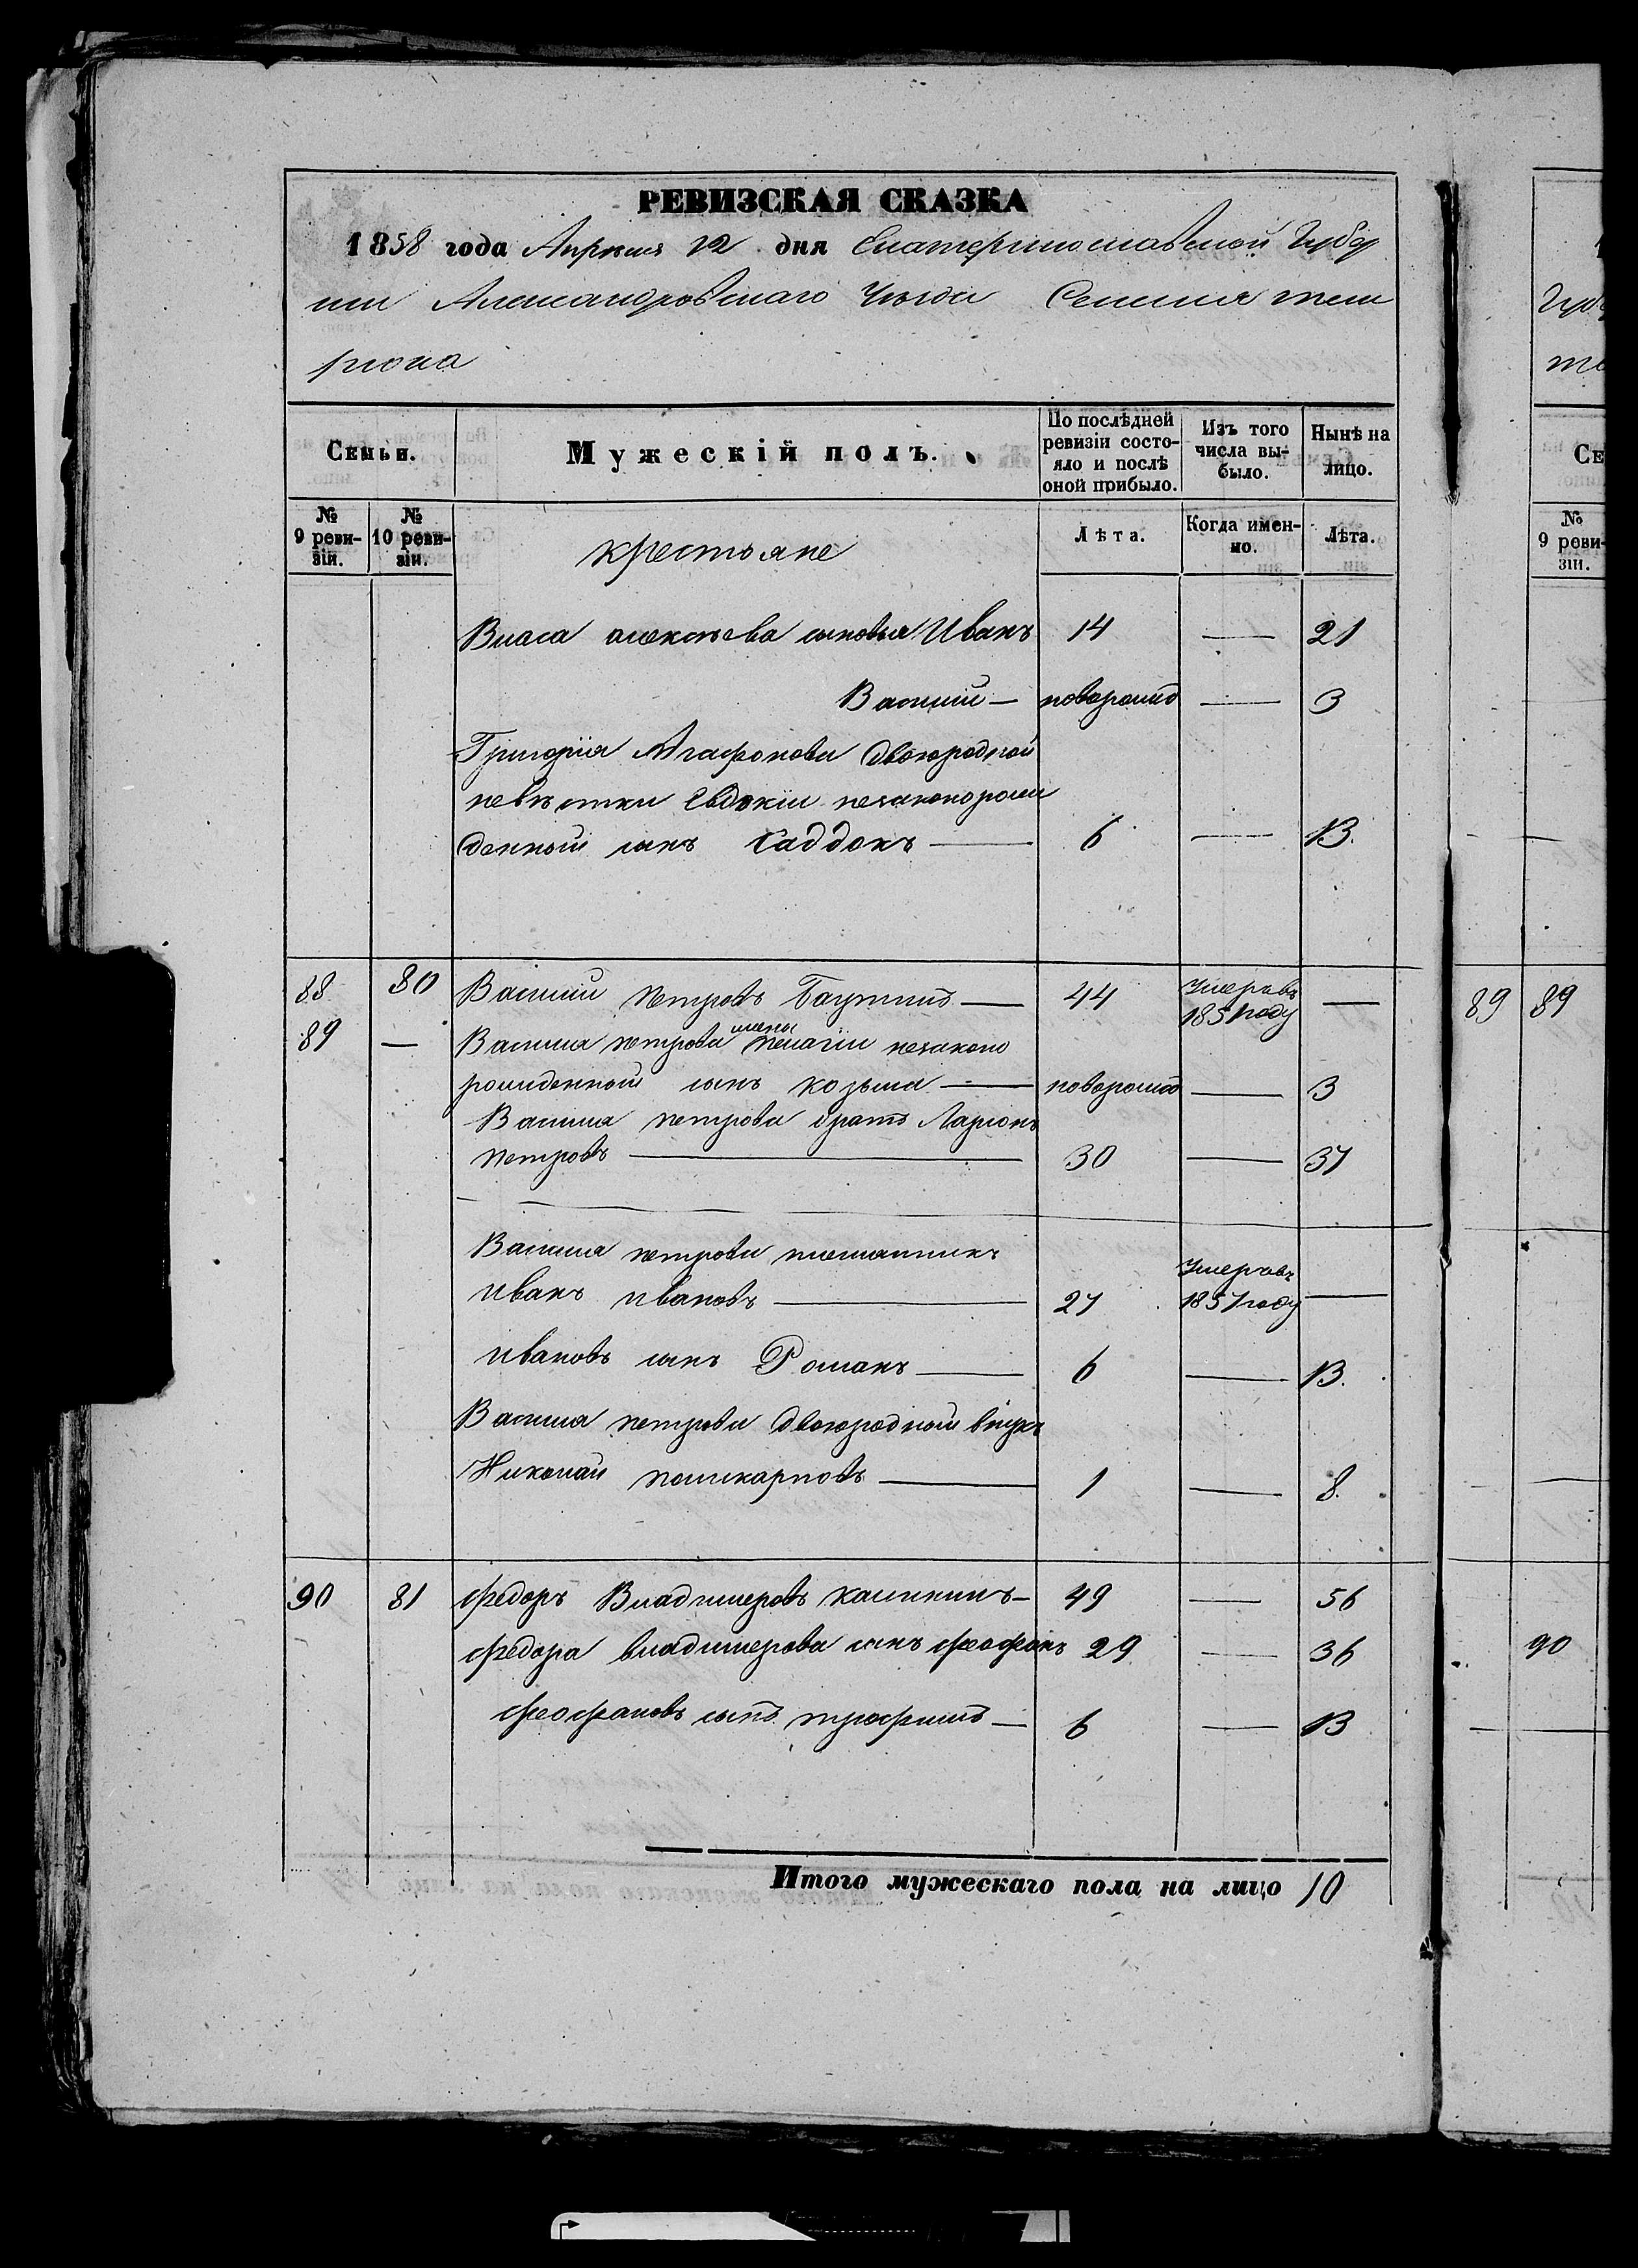 РЕВИЗСКАЯ СКАЗКА
1858 года Апреля 12 дня Екатеринославской Губер
нии Александровского Уезда Селения тем
рюка
Семьи.
Мужескій полъ.
По послѣдней ревизіи состо-
яло и послѣ оной прибыло.
Изъ того числа вы-
было.
Нынѣ на лицо.
№ 9 реви-
зіи.
№ 10 реви-
зіи.
крестьяне
Лѣта.
Когда имен-
но.
Лѣта.
Власа алексѣева сыновья Иванъ 14 — 21
Василий — новорожд — 3
Григорія Агафонова двоюродной
невѣстки Евдокіи незаконорож
денный сынъ Саддокъ — 6 — 13.
88 80 Василий Петровъ — 44 Умеръ въ 1851 году —
89 — Василия петрова жены пелагіи незаконо
рожденный сынъ козьма — новорожд — 3
Василия петрова братъ Ларионъ
петровъ — 30 — 37
Василия петрова племянникъ
иванъ ивановъ — 27 Умеръ въ 1857 году —
ивановъ сынъ Романъ — 6 — 13.
Василия петрова двоюродный внукъ
Николай поликарповъ — 1 — 8.
90 81 федоръ Владимеровъ калинин — 49 — 56
федора владимерова сынъ феофанъ 29 — 36
феофановъ сынъ трофимъ — 6 — 13
Итого мужескаго пола на лицо 10
№ 9 реви-
зіи.
89 89
90